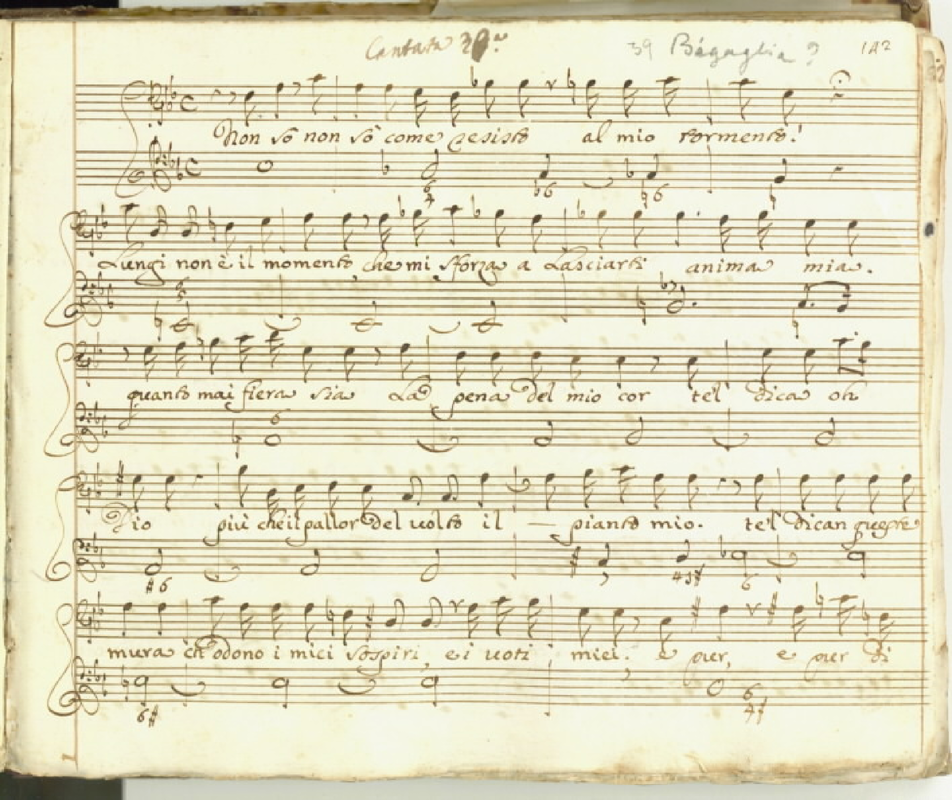 Cantata 39.a
39 Bigaglia ? 142
Non so non so come resisto al mio tormento!
Lungi non è il momento, che mi sforza a Lasciarti anima mia.
quanto mai fiera sia La pena del mio cor tel dica oh
Dio più che il pallor del uolto il pianto mio. tel dican queste
mura ch odono i miei sospiri, e i uoti miei. e pur, e pur di